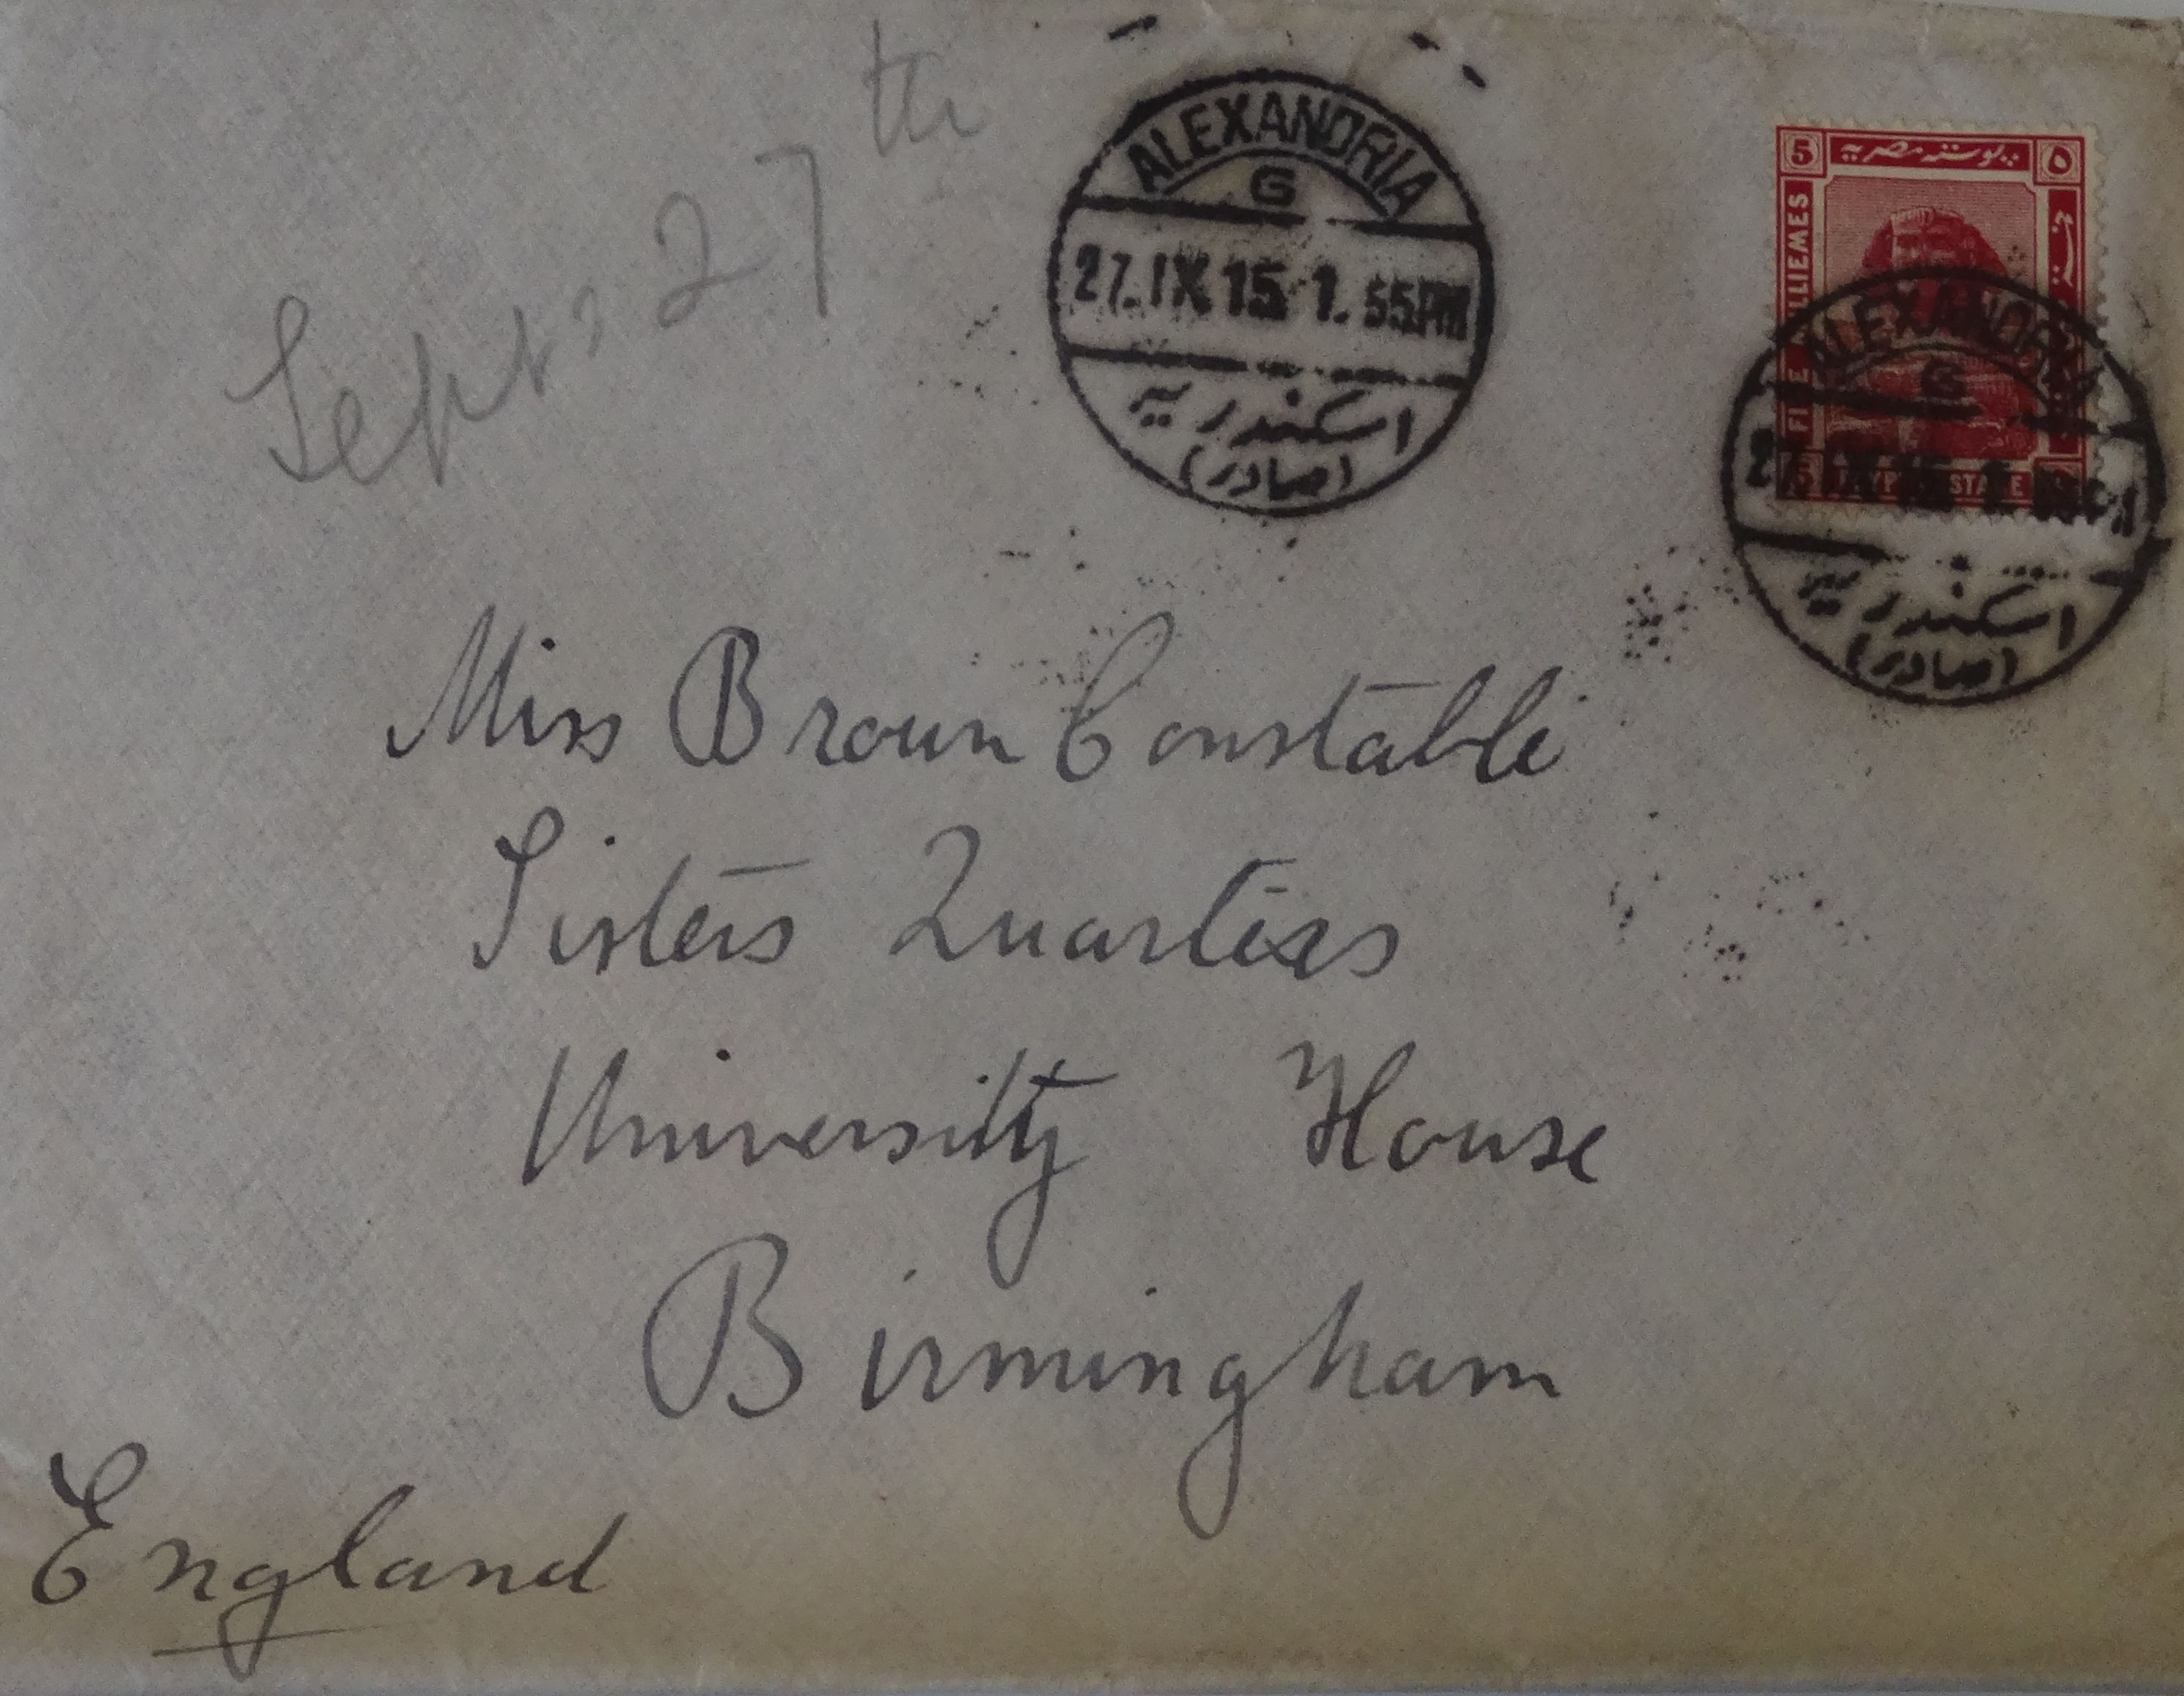 Sept: 27th
ALEXANDRIA
G
27. IX 15 1. 55PM
اسكندريه
(صادر)
5 بوسته مصريه ٥
FIVE MILLIEMES
5 EGYPT POSTAGE
ALEXANDRIA
G
27. IX 15 1. 55PM
اسكندريه
(صادر)
Miss Broun Constable
Sisters Quarters
University House
Birmingham
England